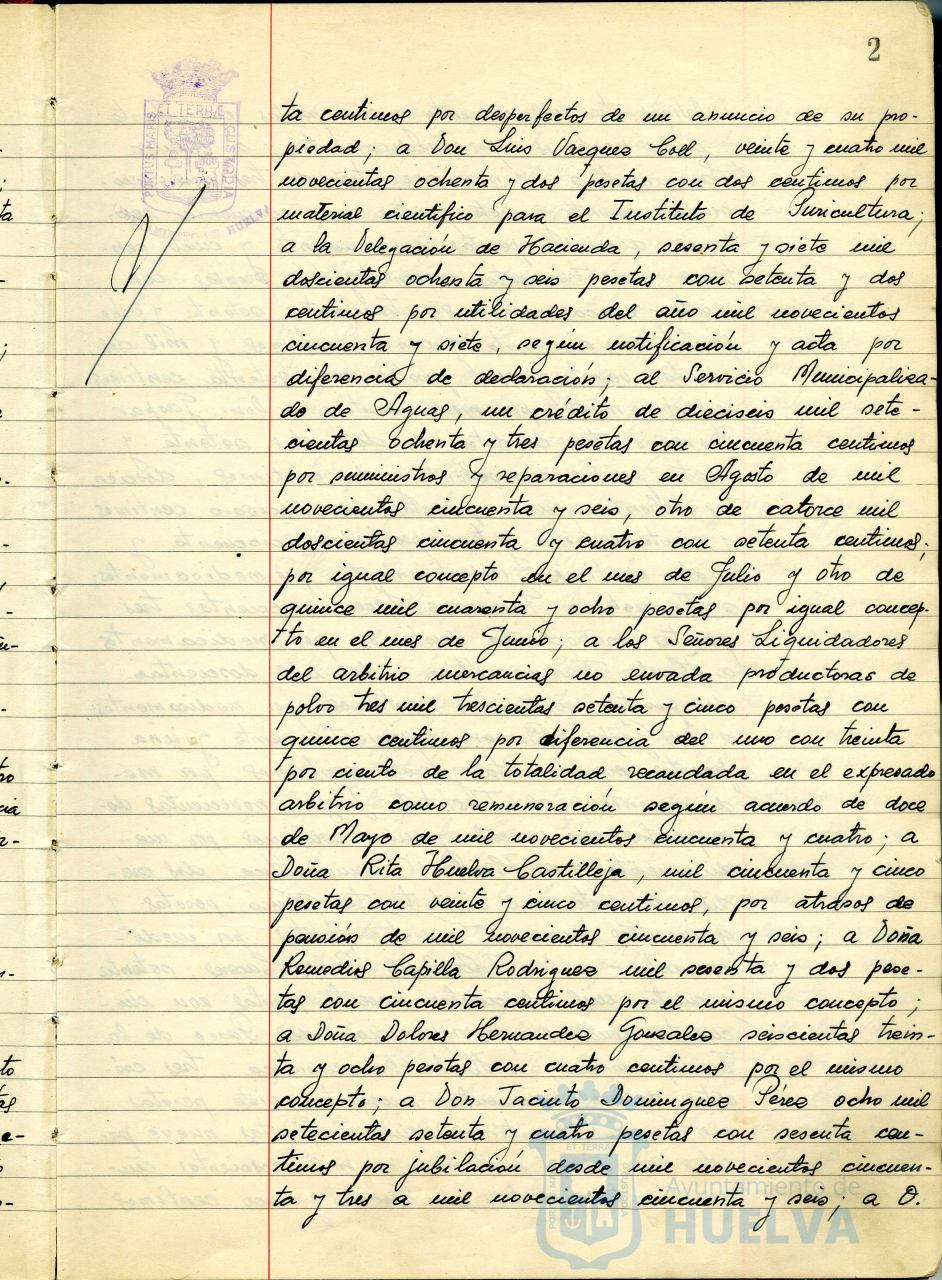 2
ta centimos por desperfectos de un anuncio de su pro-
piedad; a Don Luis Vazquez Coll, veinte y cuatro mil
novecientas ochenta y dos pesetas con dos centimos por
material cientifico para el Instituto de Puricultura;
a la Delegación de Hacienda, sesenta y siete mil
doscientas ochenta y seis pesetas con setenta y dos
centimos por utilidades del año mil novecientos
cincuenta y siete, según notificación y acta por
diferencia de declaración; al Servicio Municipaliza-
do de Aguas, un crédito de dieciseis mil sete-
cientas ochenta y tres pesetas con cincuenta centimos
por suministros y reparaciones en Agosto de mil
novecientos cincuenta y seis, otro de catorce mil
doscientas cincuenta y cuatro con setenta centimos;
por igual concepto en el mes de Julio y otro de
quince mil cuarenta y ocho pesetas por igual concep-
to en el mes de Junio; a los Señores Liquidadores
del arbitrio mercancias no envada productoras de
polvo tres mil trescientas setenta y cinco pesetas con
quince centimos por diferencia del uno con treinta
por ciento de la totalidad recaudada en el expresado
arbitrio como remuneración según acuerdo de doce
de Mayo de mil novecientos cincuenta y cuatro; a
Doña Rita Huelva Castilleja, mil cincuenta y cinco
pesetas con veinte y cinco centimos, por atrasos de
pensión de mil novecientos cincuenta y seis; a Doña
Remedios Capilla Rodriguez mil sesenta y dos pese-
tas con cincuenta centimos por el mismo concepto;
a Doña Dolores Hernandez Gonzalez seiscientas trein-
ta y ocho pesetas con cuatro centimos por el mismo
concepto; a Don Jacinto Dominguez Pérez ocho mil
setecientas setenta y cuatro pesetas con sesenta cen-
timos por jubilación desde mil novecientos cincuen-
ta y tres a mil novecientos cincuenta y seis; a D.
PORTUS MARIS ET TERRÆ CUSTODIA
HUELVA
Ayuntamiento de
HUELVA